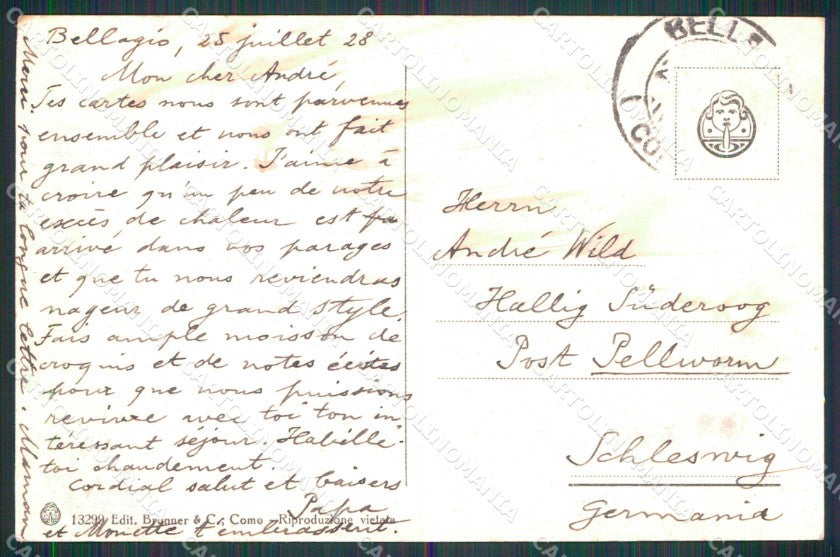 Bellagio, 25 juillet 28
Mon cher André,
Tes cartes nous sont parvenues
ensemble et nous ont fait
grand plaisir. J'aime à
croire qu'un peu de notre
excès de chaleur est
arrivé dans vos parages
et que tu nous reviendras
nageur de grand style.
Fais ample moisson de
croquis et de notes écrites
pour que nous puissions
revivre avec toi ton in-
téressant séjour. Habille-
toi chaudement.
Cordial salut et baisers
Papa
et Monette t'embrassent.
Merci pour ta longue lettre. Maman
13299 Edit. Brunner & C., Como - Riproduzione vietata
BELLA
CO
Herrn
André Wild
Hallig Süderoog
Post Pellworm
Schleswig
Germania
CARTOLINOMANIA